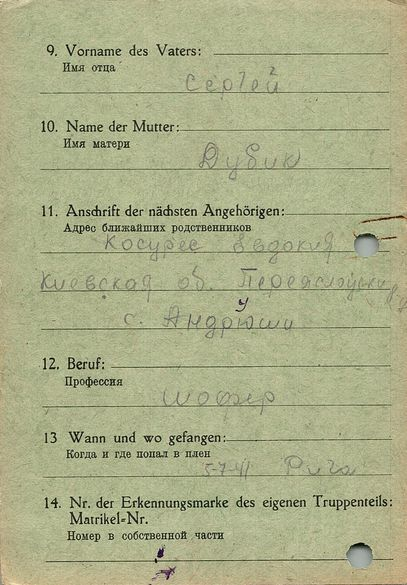 9. Vorname des Vaters:
Имя отца
Сергей
10. Name der Mutter:
Имя матери
Дубик
11. Anschrift der nächsten Angehörigen:
Адрес ближайших родственников
Евдокия
Киевская об.
с. Андрюши
12. Beruf:
Профессия
шофер
13 Wann und wo gefangen:
Когда и где попал в плен
5-7-41 Рига
14. Nr. der Erkennungsmarke des eigenen Truppenteils:
Matrikel=Nr.
Номер в собственной части